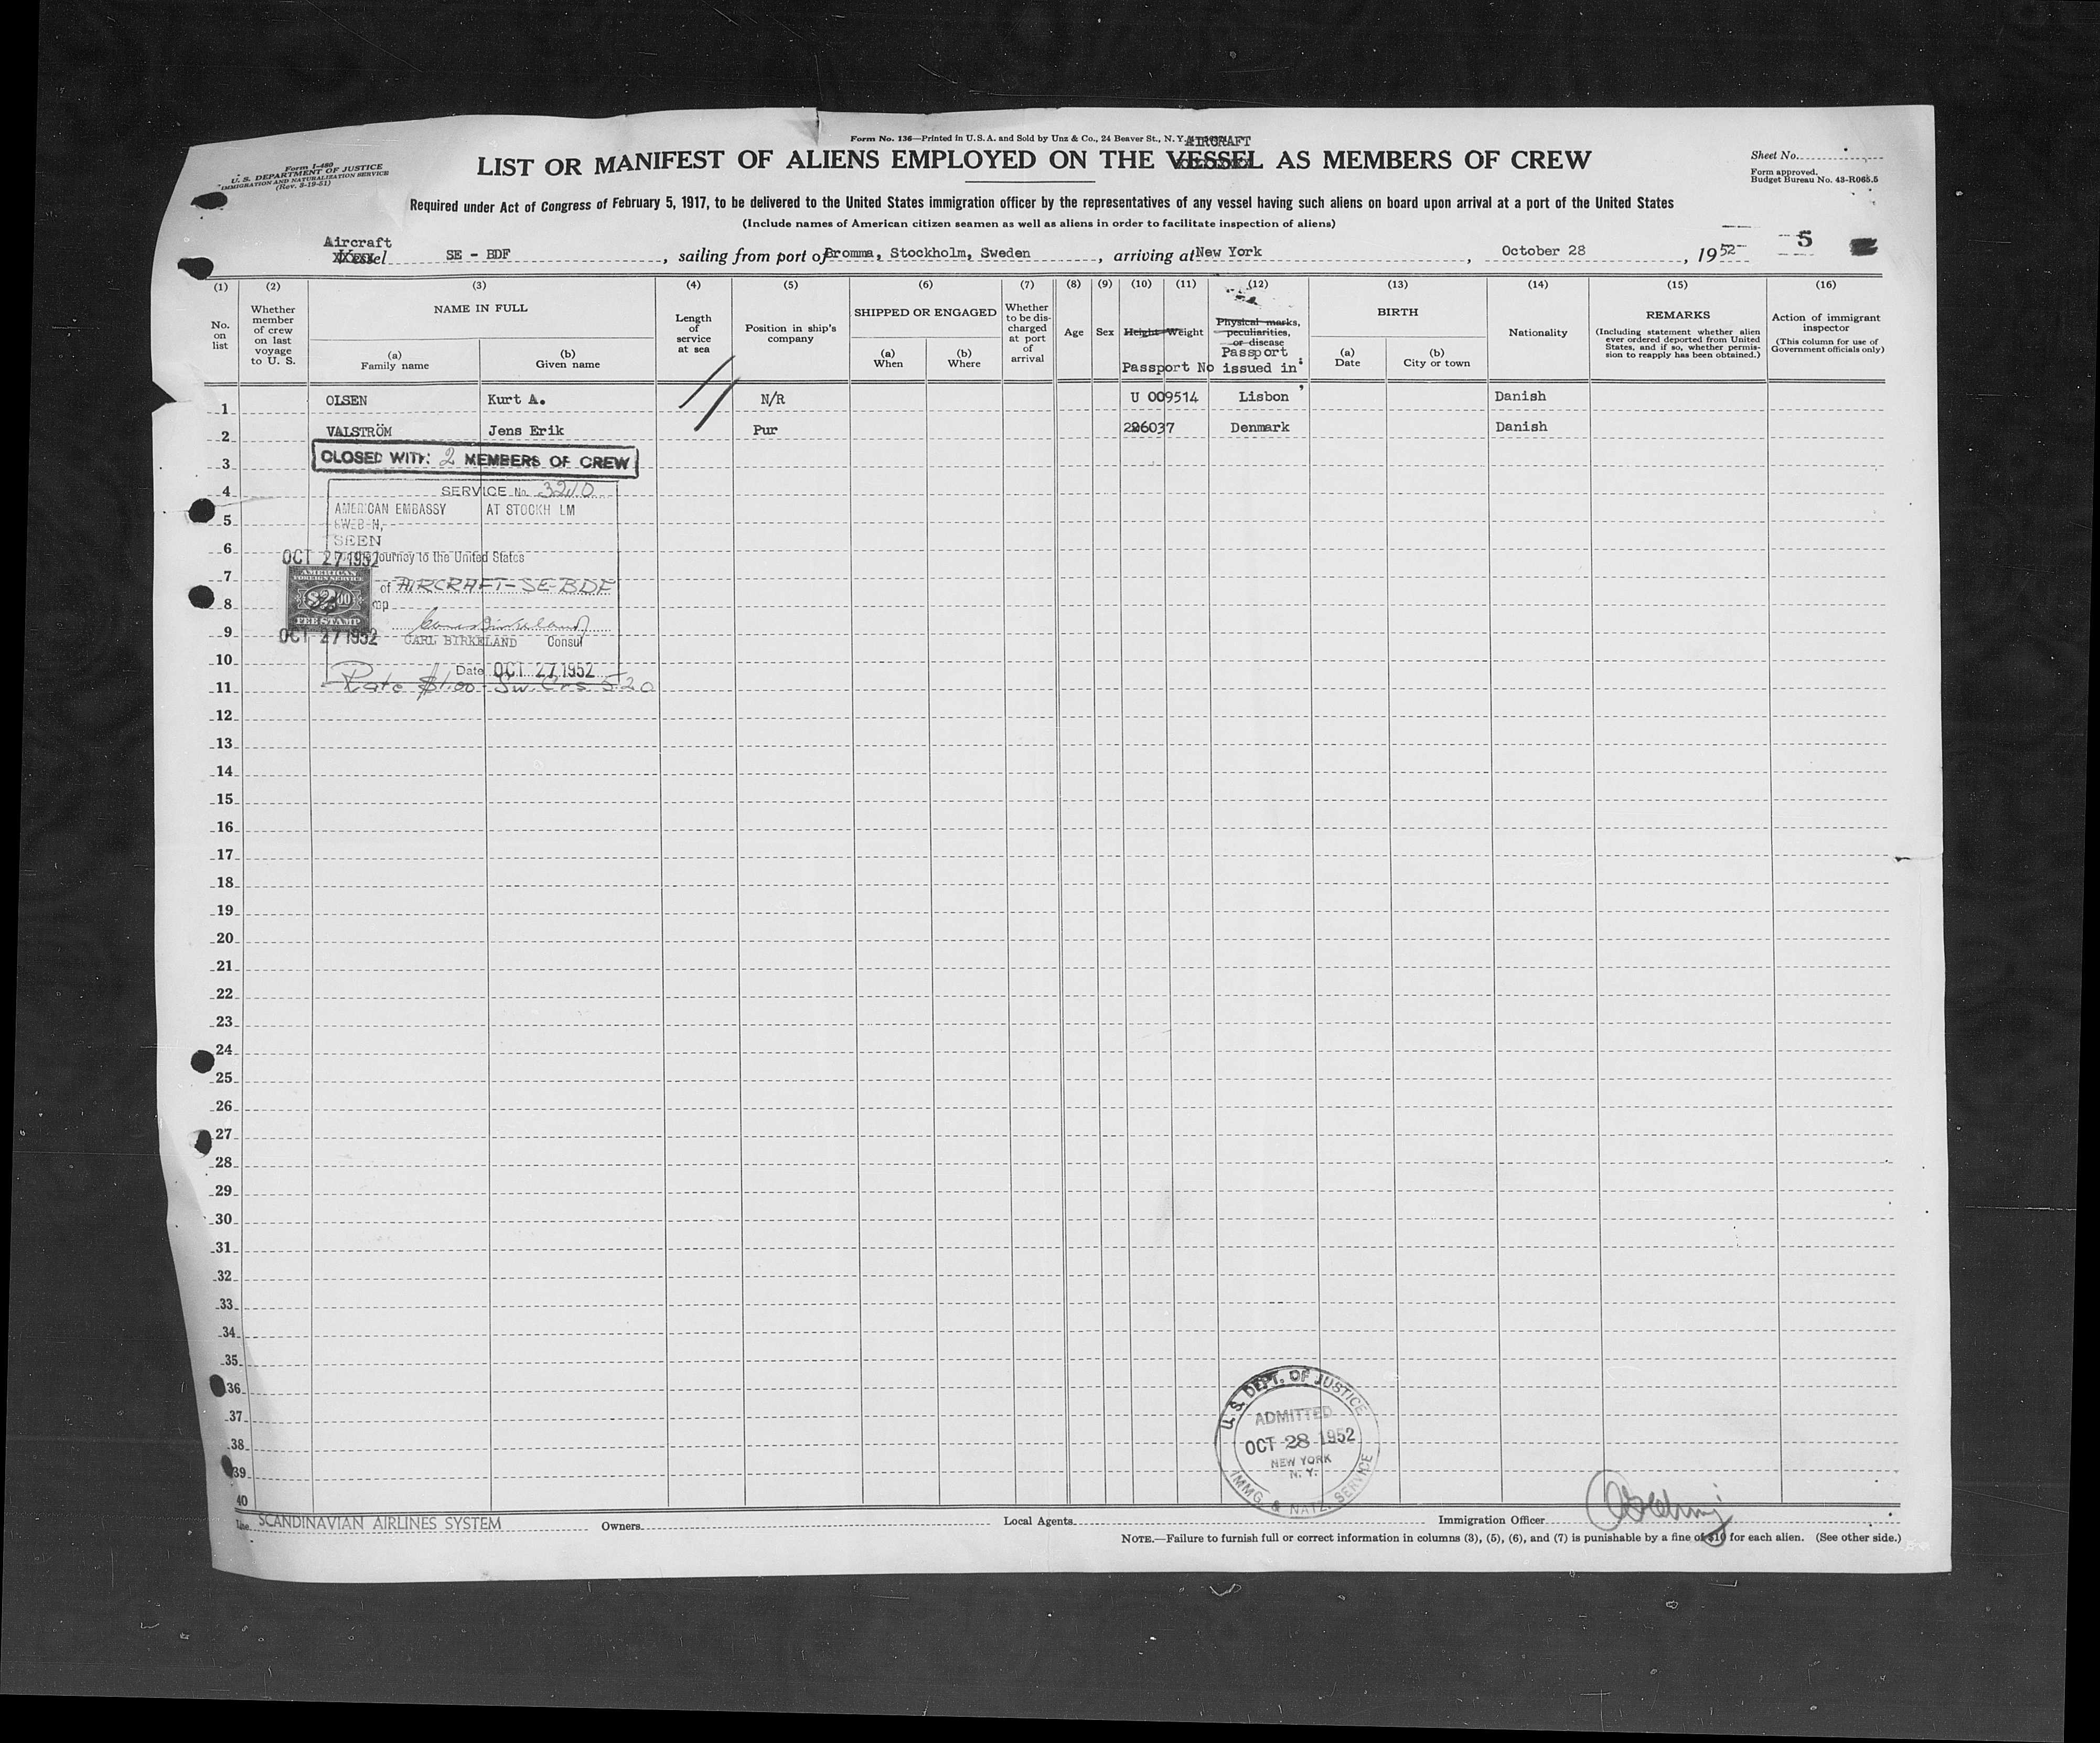 Form No. 136—Printed in U.S.A. and Sold by Unz & Co., 24 Beaver St., N.Y.
AIRCRAFT
Form I-480
U. S. DEPARTMENT OF JUSTICE
IMMIGRATION AND NATURALIZATION SERVICE
(Rev. 3-19-51)
LIST OR MANIFEST OF ALIENS EMPLOYED ON THE VESSEL AS MEMBERS OF CREW
Sheet No.
Form approved.
Budget Bureau No. 43-R065.5
Required under Act of Congress of February 5, 1917, to be delivered to the United States immigration officer by the representatives of any vessel having such aliens on board upon arrival at a port of the United States
(Include names of American citizen seamen as well as aliens in order to facilitate inspection of aliens)
Aircraft
Vessel SE - BDF, sailing from port of Bromma, Stockholm, Sweden, arriving at New York, October 28, 1952 5
(1) (2) (3) (4) (5) (6) (7) (8) (9) (10) (11) (12) (13) (14) (15) (16)
No. on list
Whether member of crew on last voyage to U. S.
NAME IN FULL
(a) Family name
(b) Given name
Length of service at sea
Position in ship's company
SHIPPED OR ENGAGED
(a) When
(b) Where
Whether to be discharged at port of arrival
Age
Sex
Height
Weight
Physical marks, peculiarities, or disease
Passport No
Passport issued in:
BIRTH
(a) Date
(b) City or town
Nationality
REMARKS
(Including statement whether alien ever ordered deported from United States, and if so, whether permission to reapply has been obtained.)
Action of immigrant inspector
(This column for use of Government officials only)
1 OLSEN Kurt A. N/R U 009514 Lisbon Danish
2 VALSTRÖM Jens Erik Pur 226037 Denmark Danish
3 CLOSED WITH: 2 MEMBERS OF CREW
4 SERVICE No. 3210
AMERICAN EMBASSY AT STOCKH LM
5 SWEDEN,
SEEN
6 OCT 27 1952 journey to the United States
7 AMERICAN
FOREIGN SERVICE
of AIRCRAFT-SE-BDF
8 $2.00
FEE STAMP
9 OCT 27 1952 CARL BIRKELAND Consul
10 Date OCT 27 1952
11 Rate $1.00 - Sw. Crs 5.20
12
13
14
15
16
17
18
19
20
21
22
23
24
25
26
27
28
29
30
31
32
33
34
35
36
37
38
39
40
U. S. DEPT. OF JUSTICE
ADMITTED
OCT 28 1952
NEW YORK
N. Y.
IMMG. & NATZ. SERVICE
Line SCANDINAVIAN AIRLINES SYSTEM Owners Local Agents Immigration Officer
NOTE.—Failure to furnish full or correct information in columns (3), (5), (6), and (7) is punishable by a fine of $10 for each alien. (See other side.)